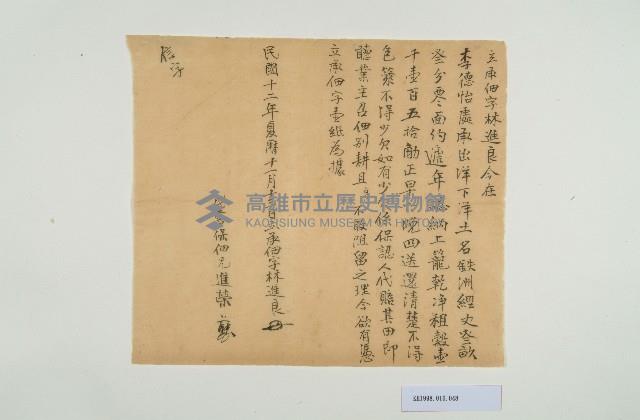 立承佃字林進良今在
李德怡處承出洋下洋土名鉄洲經丈叁畝
叁分零面約遞年納上籠乾净租穀壹
千壹百五拾觔正早晚四送還清楚不得
色簽不得少欠如有少係保認人代賠其田即
聽業主召佃別耕且不敢阻留之理今欲有憑
立承佃字壹紙為據
民國十二年夏曆十一月日立承佃字林進良
保佃兄進榮
高雄市立歷史博物館
KAOHSIUNG MUSEUM OF HISTORY
KH1998.013.068